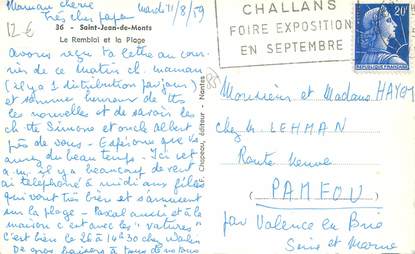 Maman chérie
Très cher papa
mardi 11/8/59
12€
36 - Saint-Jean-de-Monts
Le Remblai et la Plage
avons reçu ta lettre au cour-
rier de ce matin ch. maman
(il y a 1 distribution par jour)
et sommes heureux de
les nouvelles et de savoir les
ch. Simone et oncle Albert
près de vous - Espérons que vs
aurez du beau temps - Ici cet
a.m. il y a beaucoup de vent
ai téléphoné à midi aux
qui vont très bien et sament
sur la plage - Pascal aussi et à la
maison c'est avec les "vatures"
C'est bien le 26 à 14h30 chez
De gros baisers à tous de nous
F. Chapeau, éditeur - Nantes
CHALLANS
FOIRE EXPOSITION
EN SEPTEMBRE
20F
Monsieur et Madame HAYOT
chez M. LEHMAN
Route Neuve
PAMFOU
par Valence en Brie
Seine et Marne